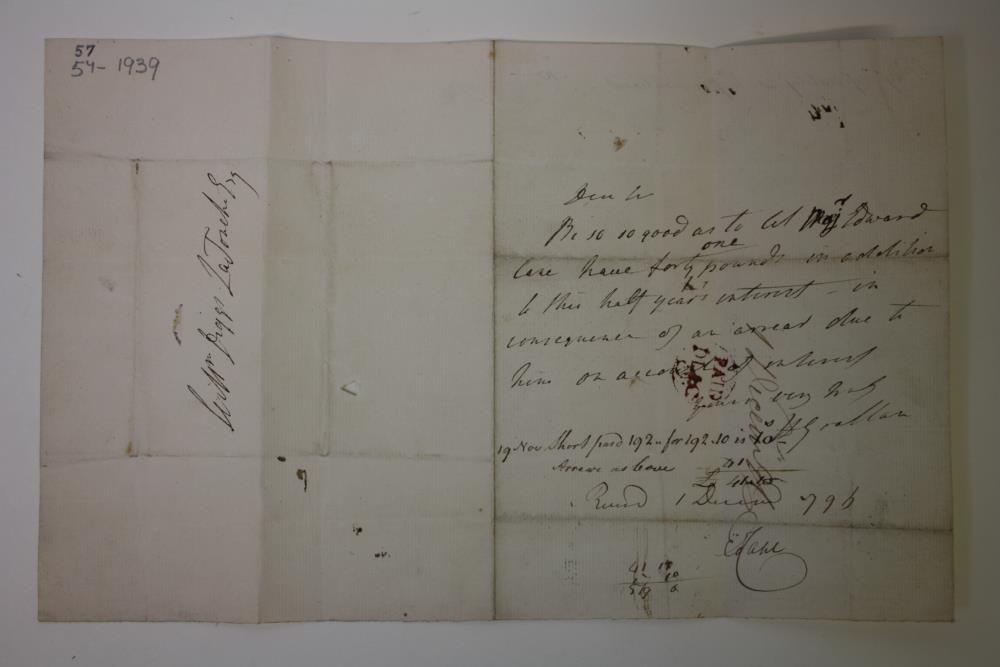 57
54-1939
Digges LaTouche Esq
Dear Sir
Be so so good as to let Maj Edward
Cane have forty one pounds in addition
to this half year's interest - in
consequence of an arrear due to
him on account of interest
yours very truly
H Grattan
PAID
19 Nov. Short paid 192 for 192.10 is 10
Arrears as above 41
Received 1 Decem 796
ECane
41 10
10